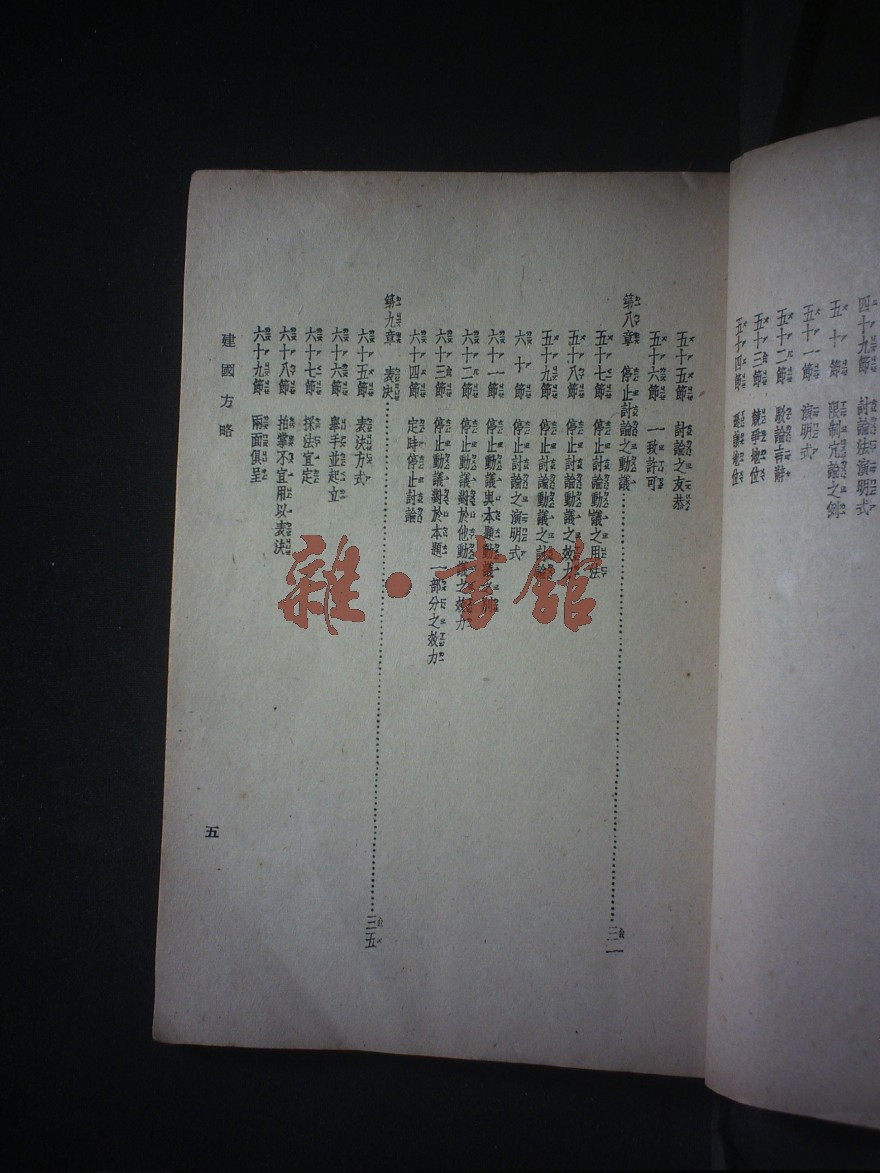 四十九節　討論法演明式
五　十　節　限制冗論之例
五十一節　演明式
五十二節　駁論言辭
五十三節　競爭地位
五十四節　遜讓地位
五十五節　討論之友恭
五十六節　一致許可
第八章　停止討論之動議……三一
五十七節　停止討論動議之用法
五十八節　停止討論動議之效力
五十九節　停止討論動議之討論
六　十　節　停止討論之演明式
六十一節　停止動議與本題動議之別
六十二節　停止動議對於他動議之效力
六十三節　停止動議對於本題一部分之效力
六十四節　定時停止討論
第九章　表決……三五
六十五節　表決方式
六十六節　舉手並起立
六十七節　採法宜定
六十八節　拍掌不宜用以表決
六十九節　兩面俱呈
建國方略
五
雜·書館